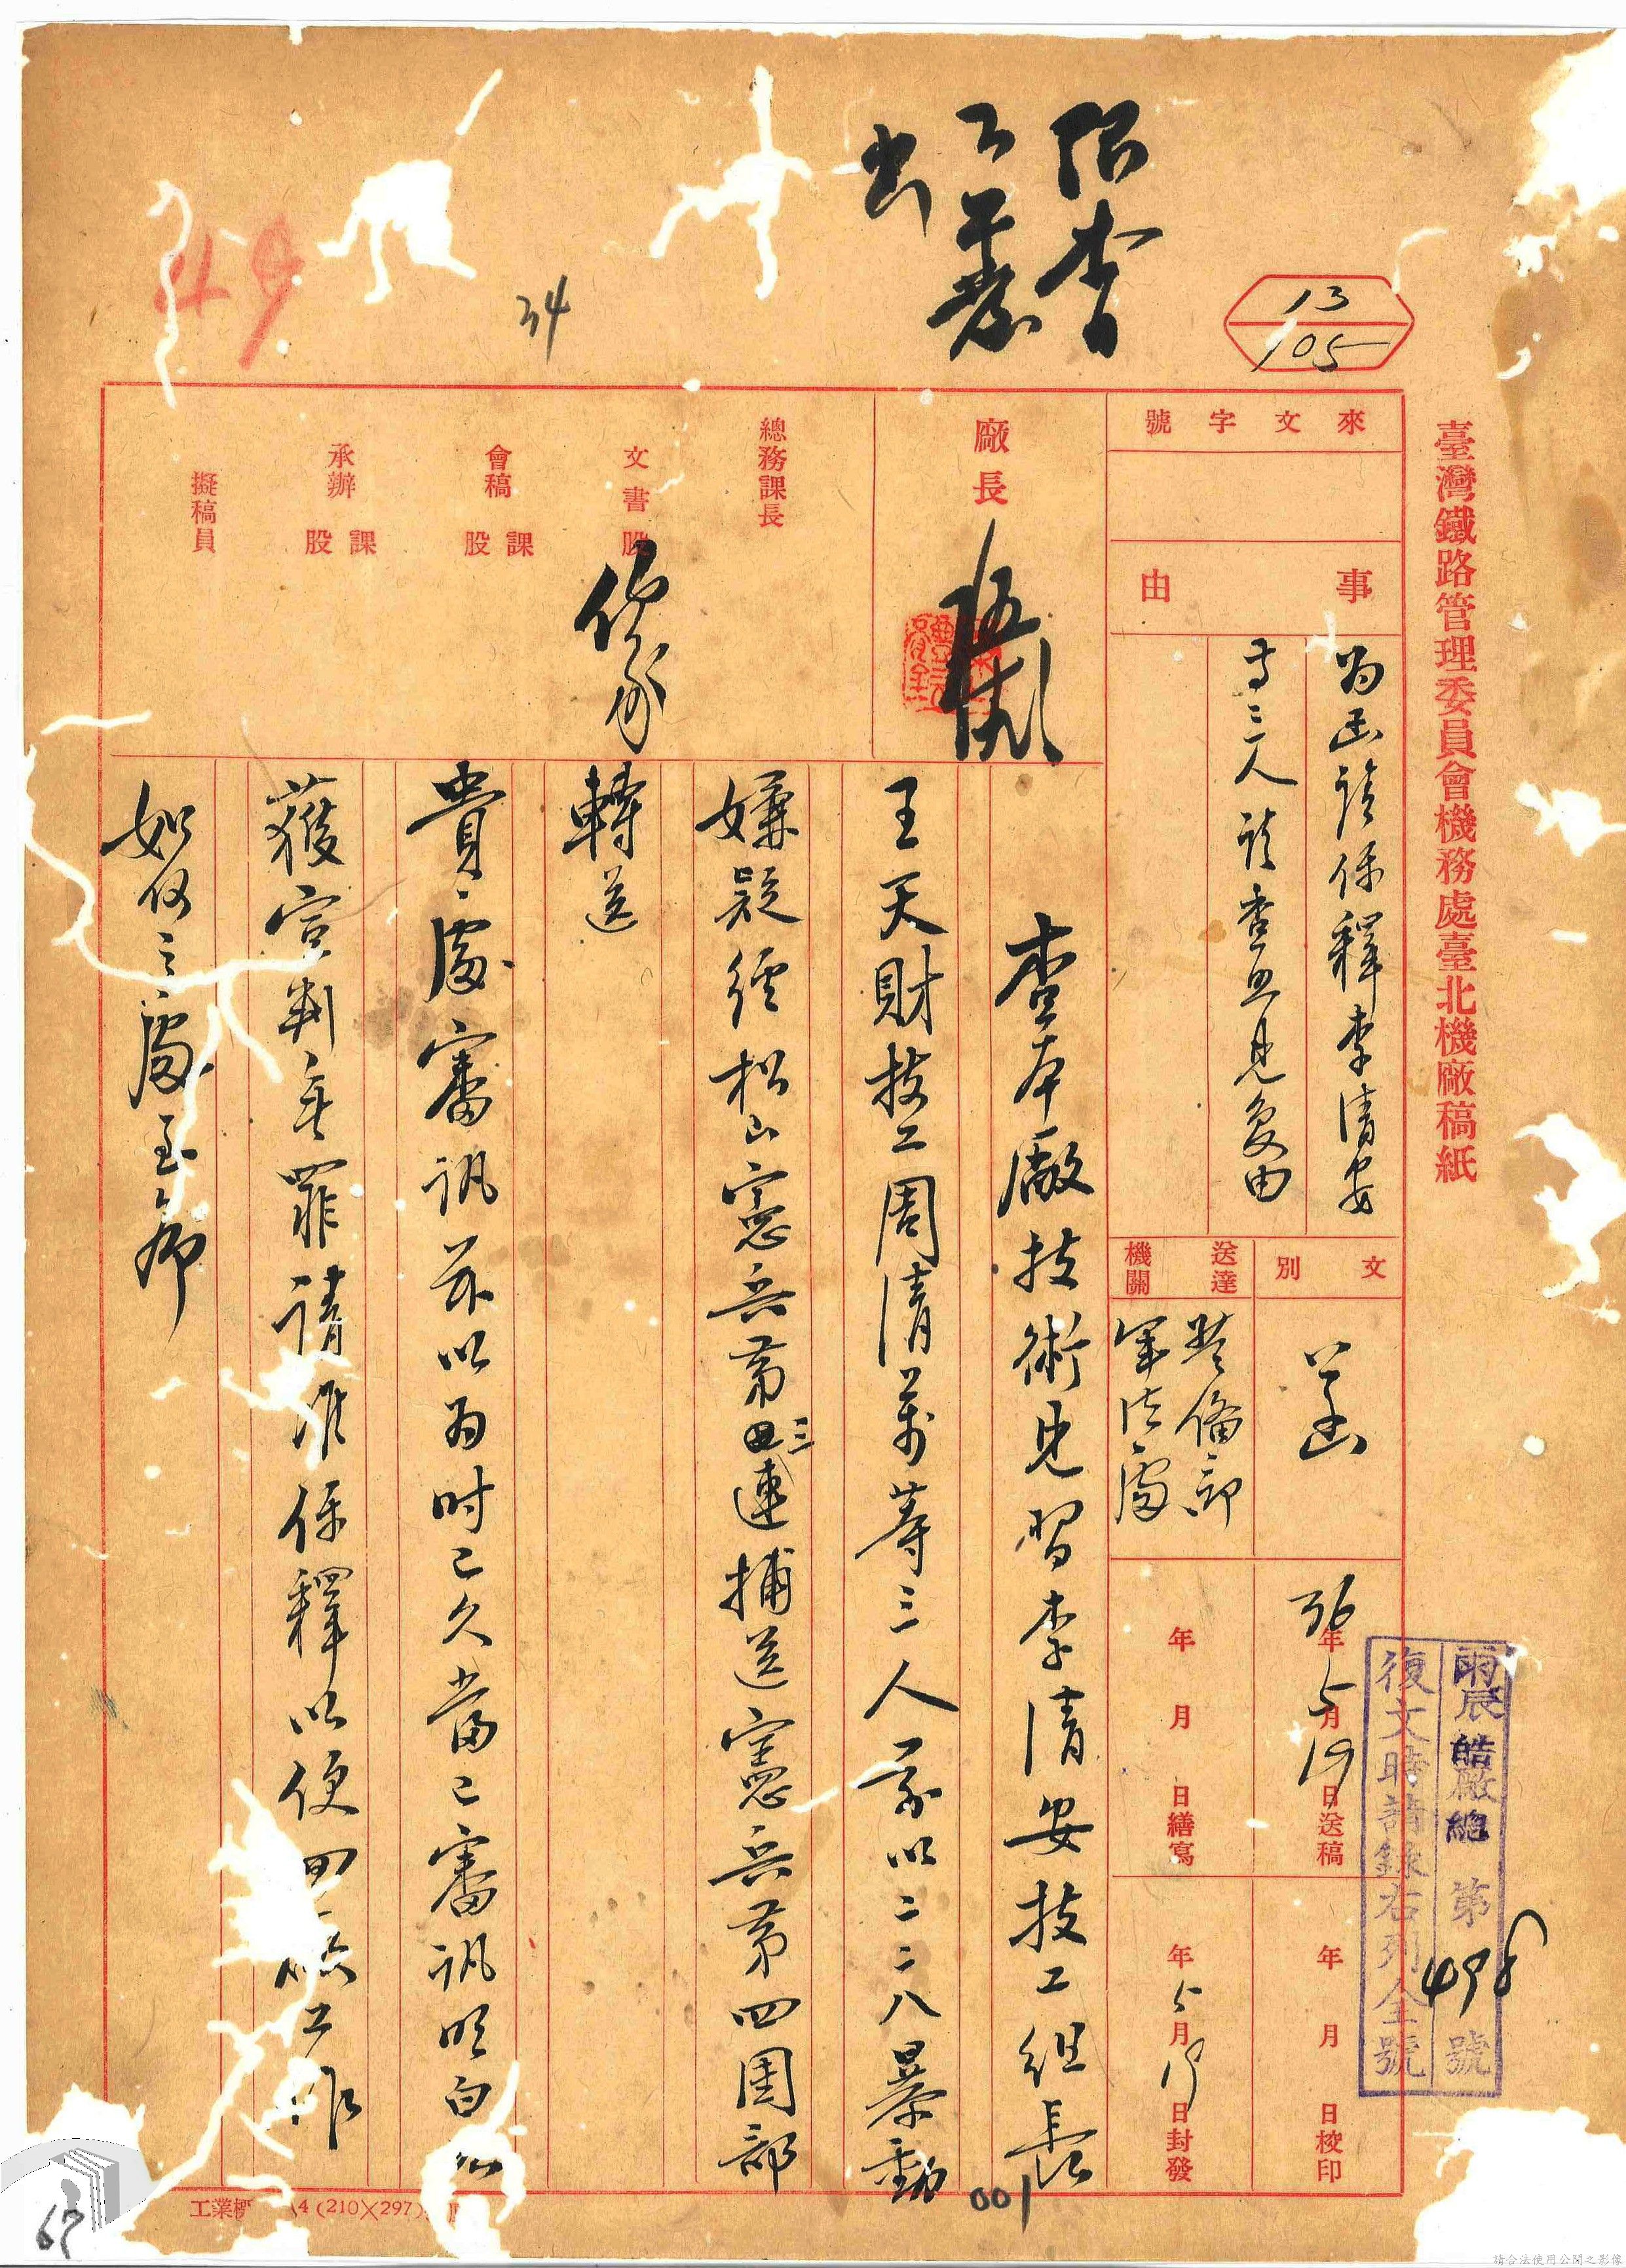 臺灣鐵路管理委員會機務處臺北機廠稿紙
13
105
34
49
來文字號
事由
為函請保釋李清安
等三人請查照見復由
文別
公函
送達機關
警備部
軍法處
36年5月19日送稿
年月日繕寫
年月日校印
年5月19日封發
雨辰皓廠總第498號
復文時請錄右列全號
廠長
總務課長
文書股
會稿課股
承辦課股
擬稿員
查本廠技術見習李清安技工組長
王天財技工周清萬等三人前以二二八暴動
嫌疑經松山憲兵第三連捕送憲兵第四團部
轉送
貴處審訊茲以為時已久當已審訊明白如
獲宣判無罪請准保釋以便回廠工作
如何之處至希
001
工業標 4(210×297)
67
請合法使用公開之影像